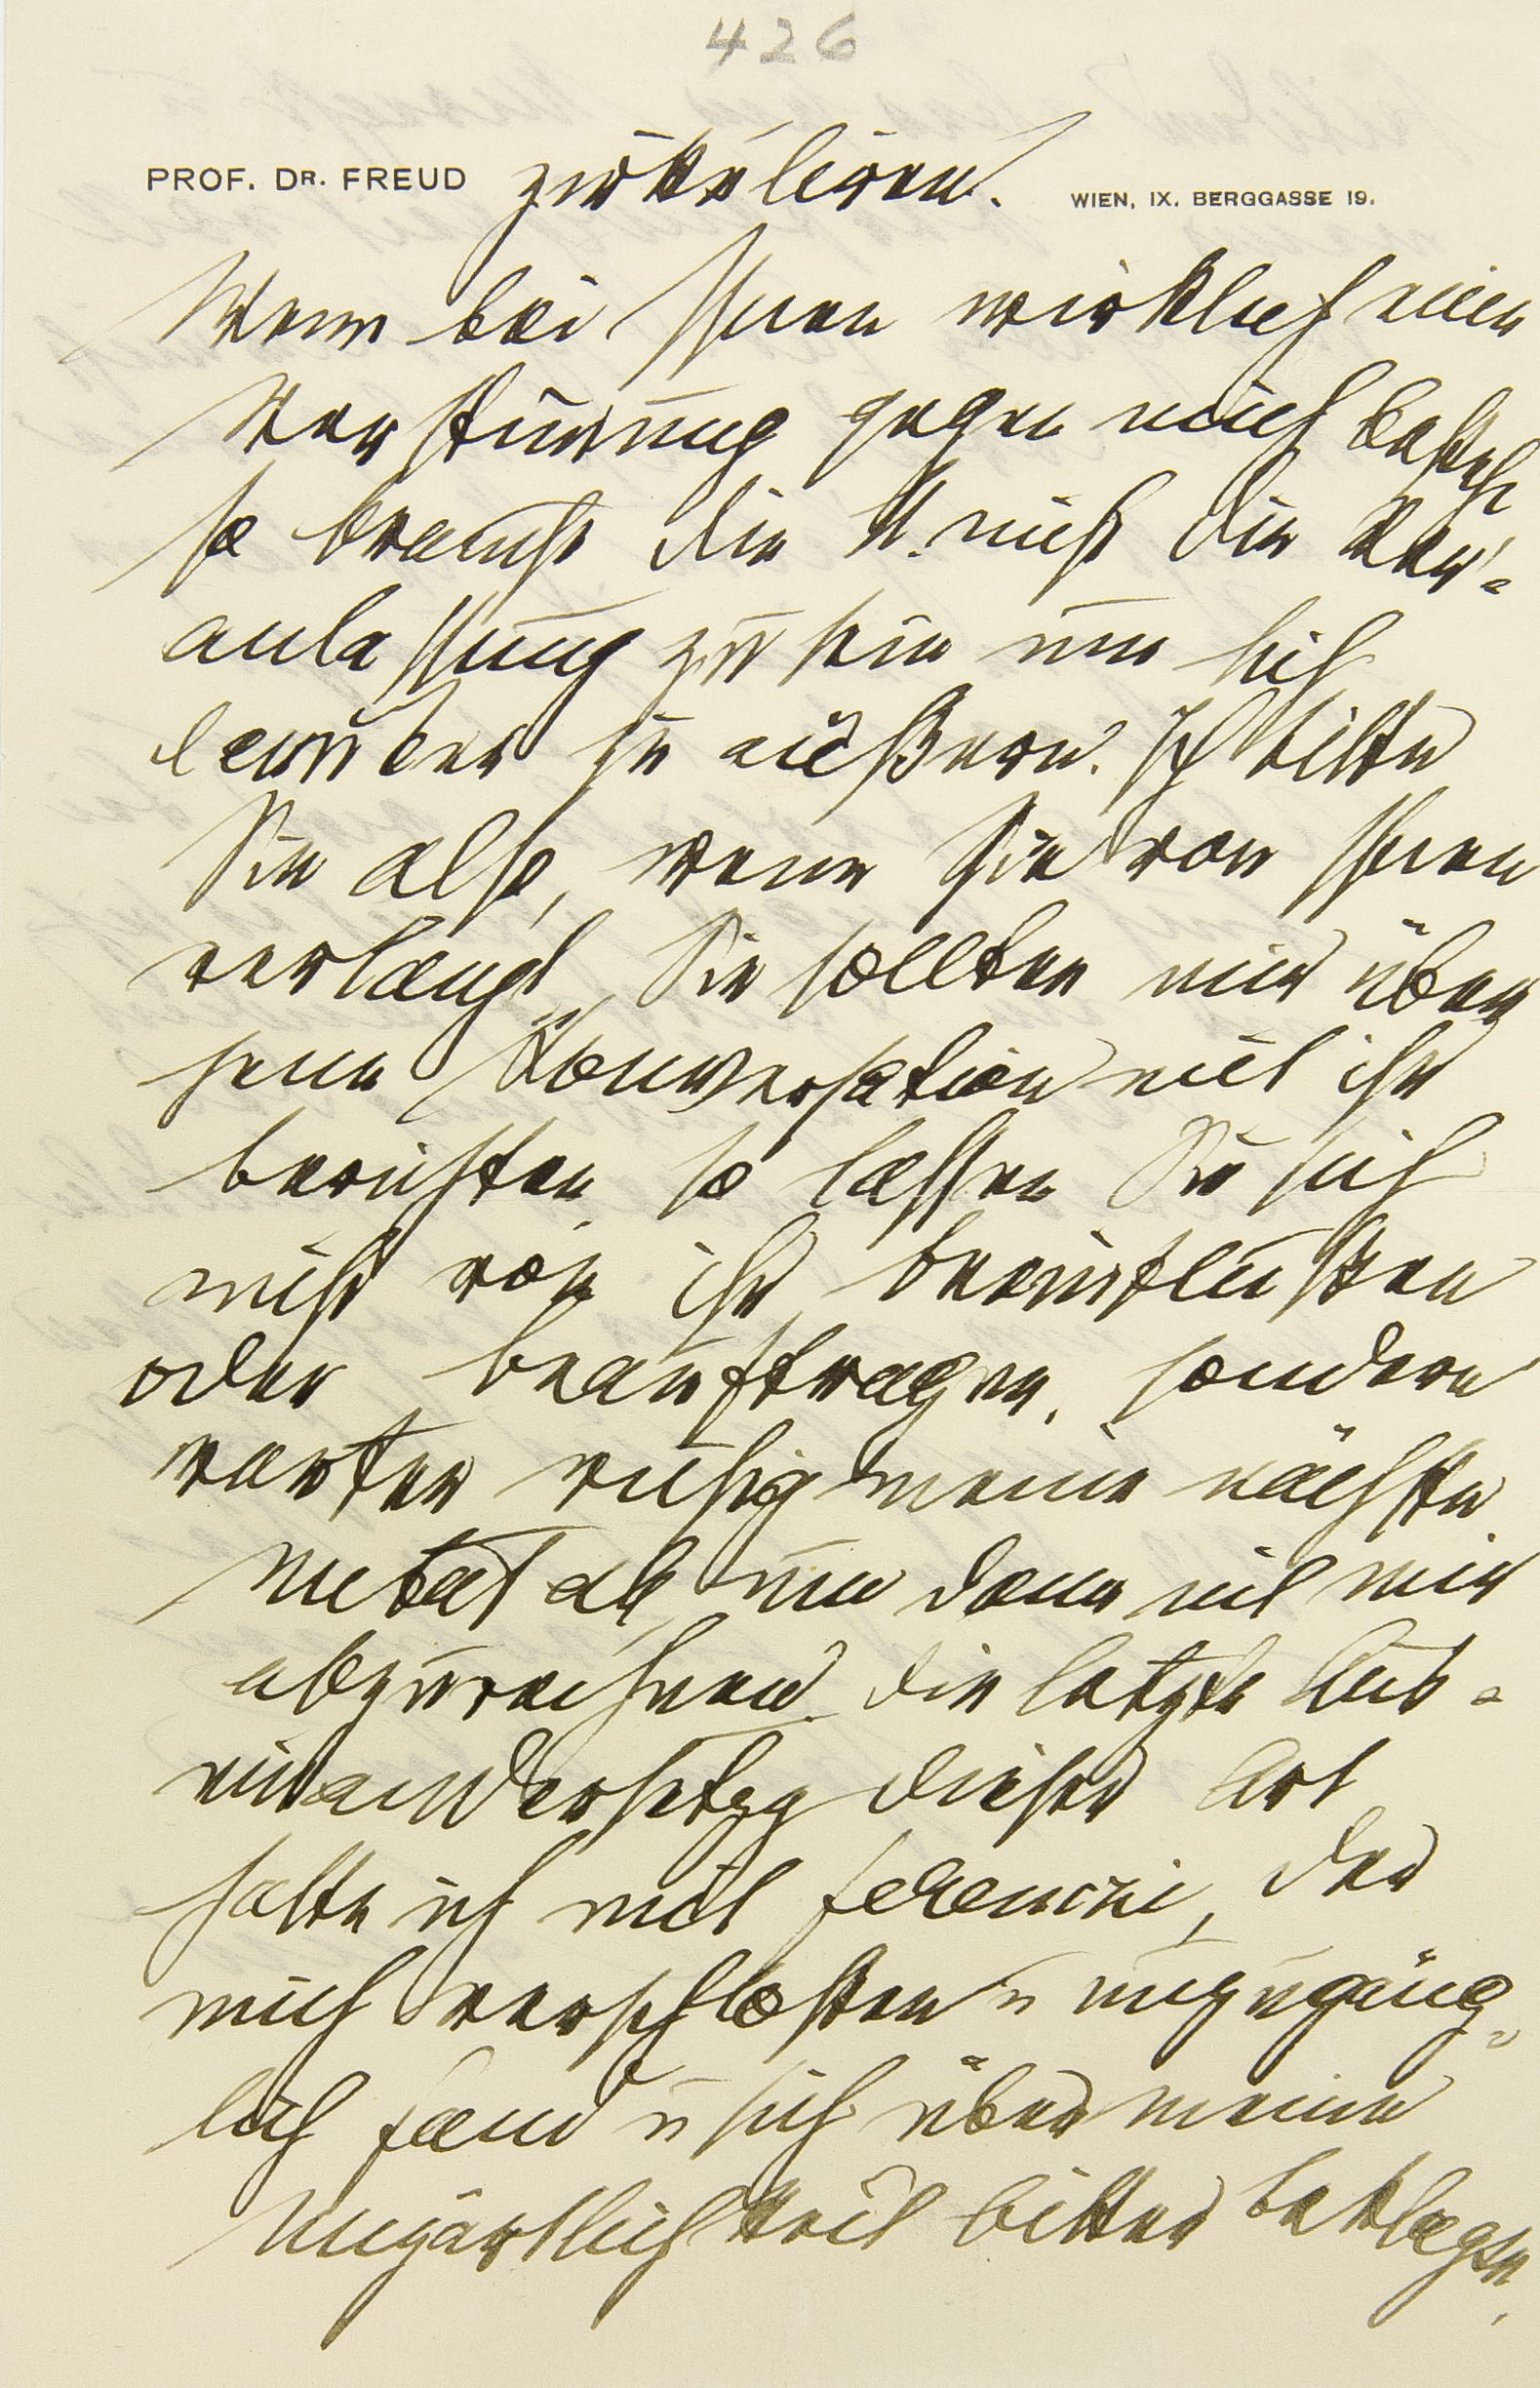 426
PROF. DR. FREUD zirkuliren. WIEN, IX. BERGGASSE 19.
Wenn bei Ihnen wirklich eine
Verstimmung gegen mich besteht
so braucht die nicht die Ver-
anlassung zu sein um sich
darüber zu äußern. Ich bitte
Sie also, wenn sie von Ihnen
verlangt, Sie sollten mir über
jene Konversation mit ihr
berichten, so lassen Sie sich
nicht von ihr beeinflussen
oder beauftragen, sondern
warten ruhig meine nächste
ab um dann mit mir
abzurechnen. Die letzte Aus-
einandersetzg dieser Art
hatte ich mit Ferenczi, der
mich verschlossen u unzugäng-
lich fand u sich über meine
Unzärtlichkeit bitter beklagte,